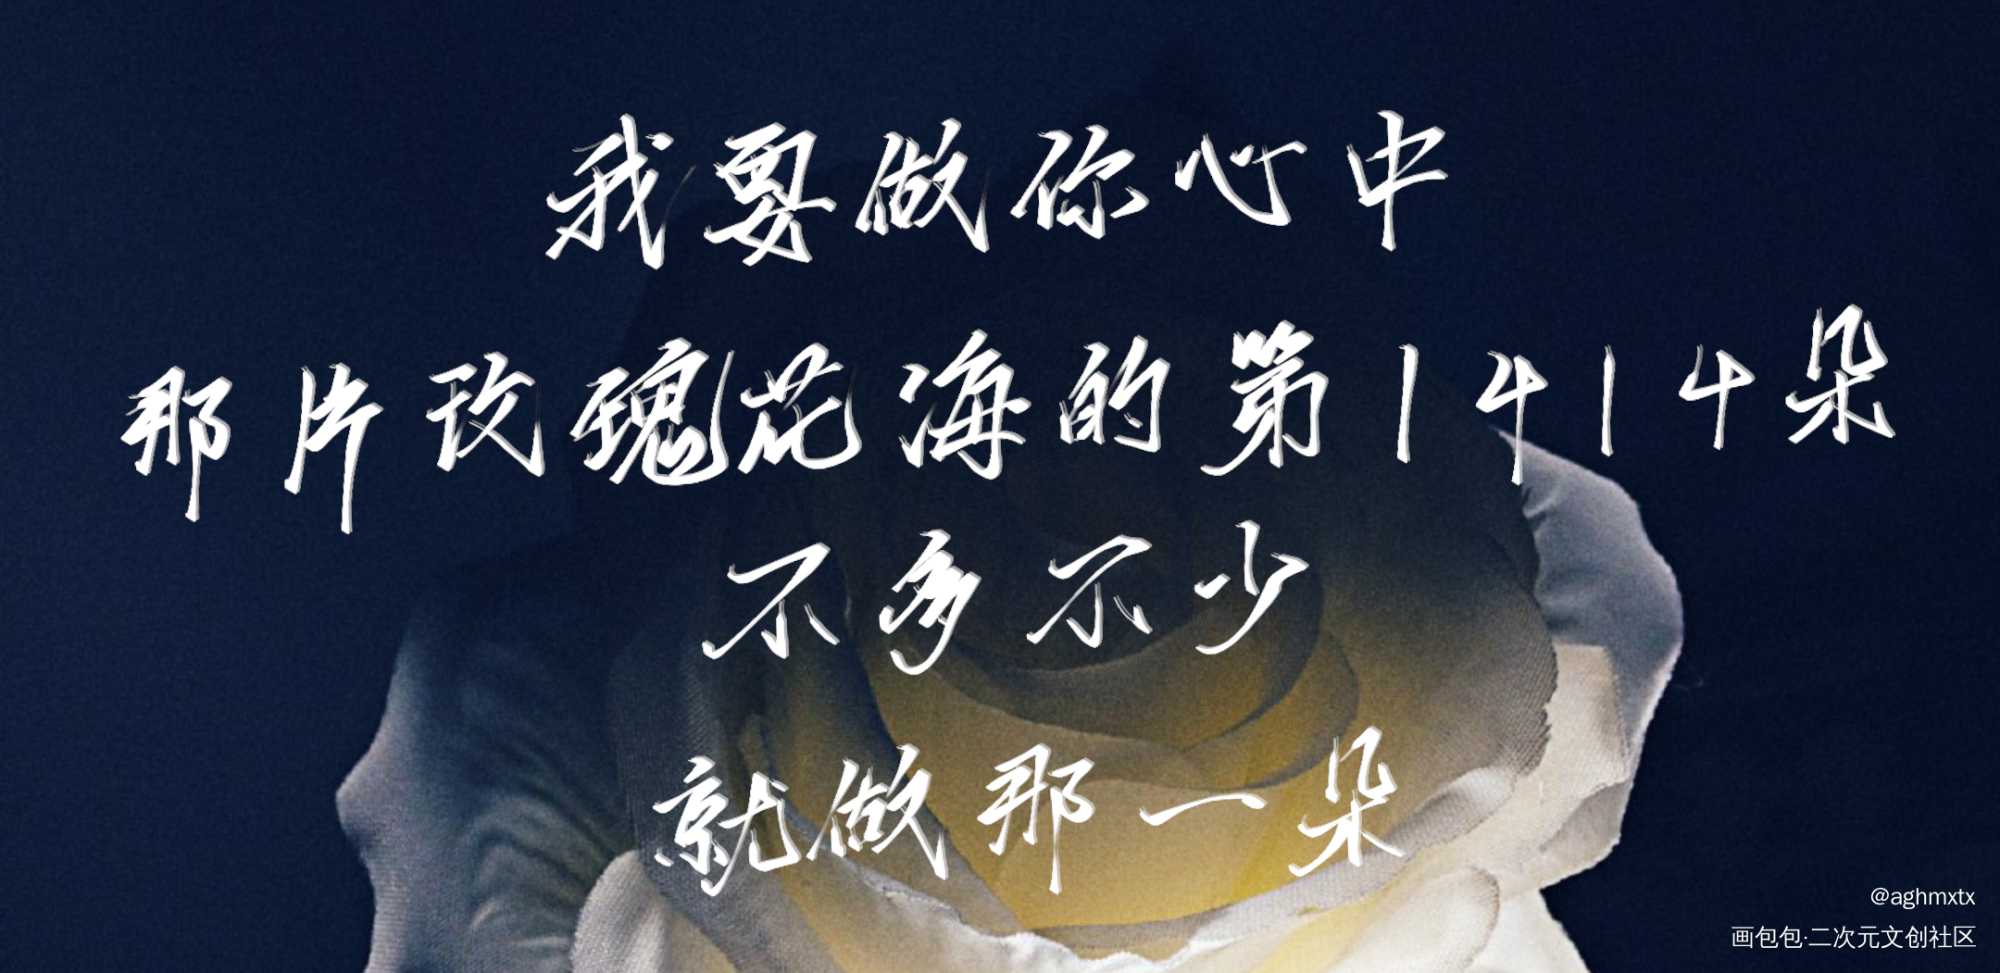 我要做你心中
那片玫瑰花海的第1414朵
不多不少
就做那一朵
@aghmxtx
画包包·二次元文创社区